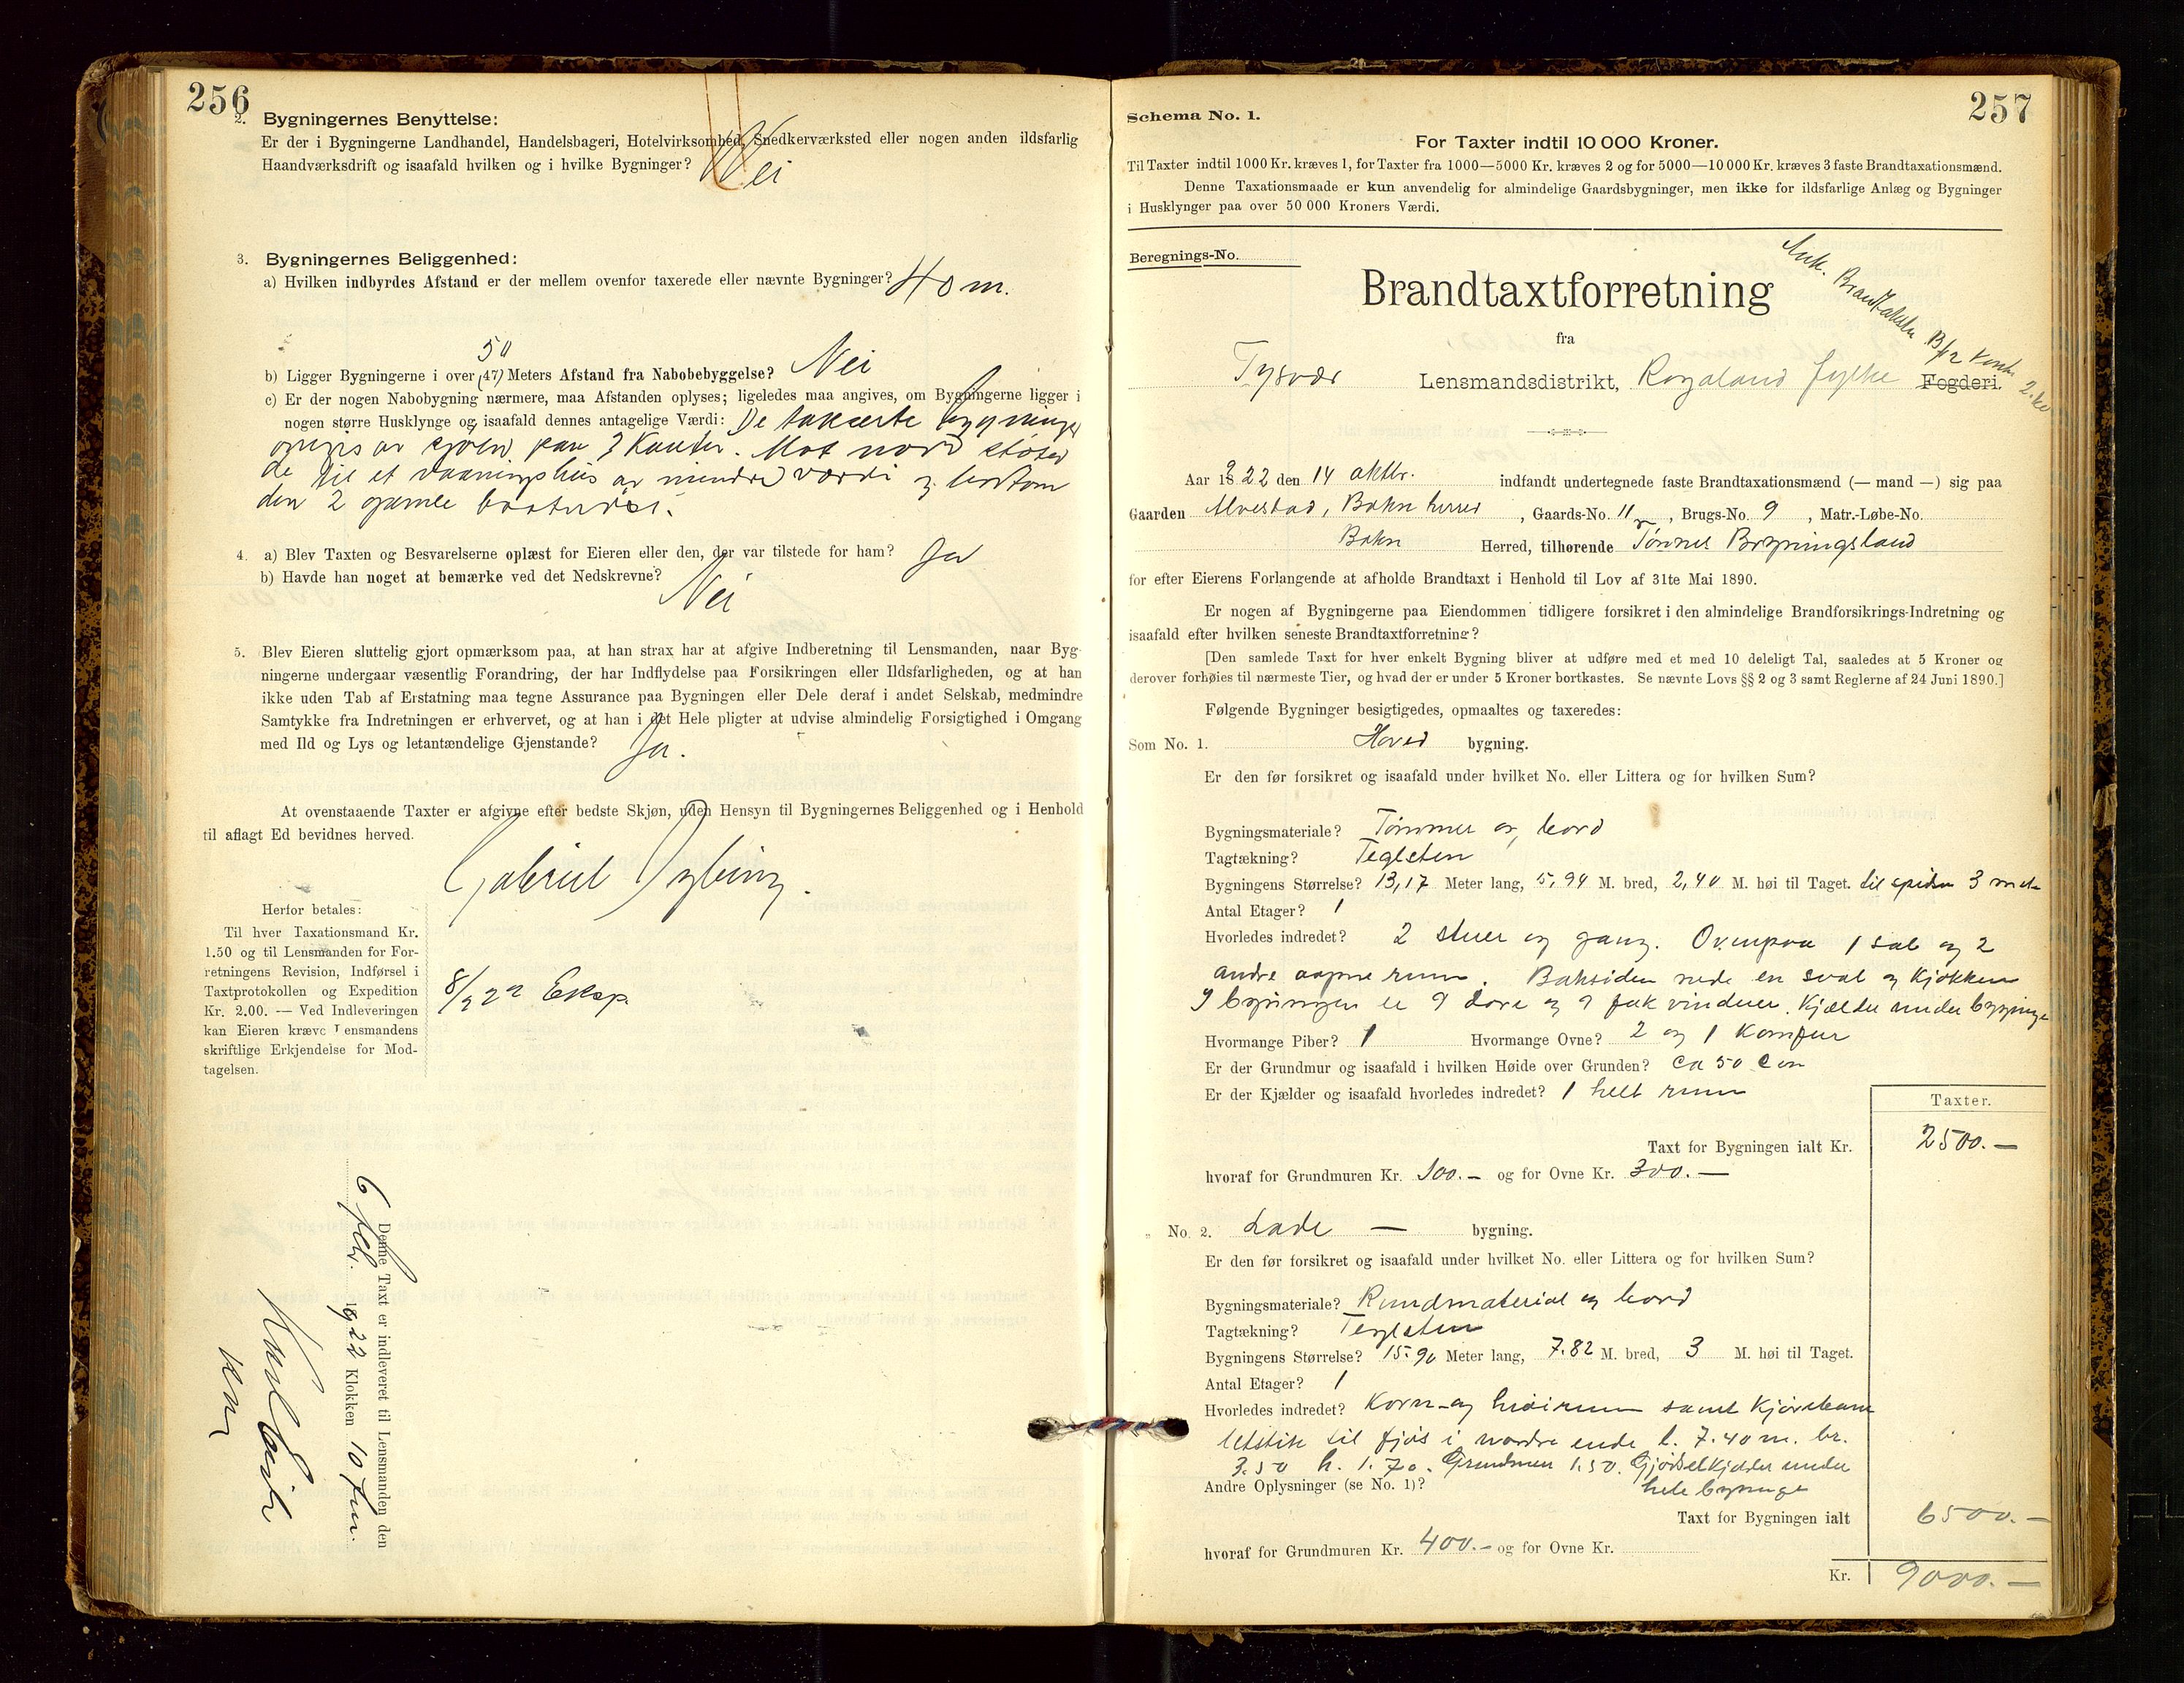 256
2. Bygningernes Benyttelse:
Er der i Bygningerne Landhandel, Handelsbageri, Hotelvirksomhed, Snedkerværksted eller nogen anden ildsfarlig
Haandværksdrift og isaafald hvilken og i hvilke Bygninger? Nei
3. Bygningernes Beliggenhed:
a) Hvilken indbyrdes Afstand er der mellem ovenfor taxerede eller nævnte Bygninger? 40 m.
50
b) Ligger Bygningerne i over (47) Meters Afstand fra Nabobebyggelse? Nei
c) Er der nogen Nabobygning nærmere, maa Afstanden oplyses; ligeledes maa angives, om Bygningerne ligger i
nogen større Husklynge og isaafald dennes antagelige Værdi: De takserte bygninger
av sjøen paa 3 Kanter. Mot nord støter
de til et vaaningshus av mindre værdi og
den 2 gamle
4. a) Blev Taxten og Besvarelserne oplæst for Eieren eller den, der var tilstede for ham? Ja
b) Havde han noget at bemærke ved det Nedskrevne? Nei
5. Blev Eieren sluttelig gjort opmærksom paa, at han strax har at afgive Indberetning til Lensmanden, naar Byg-
ningerne undergaar væsentlig Forandring, der har Indflydelse paa Forsikringen eller Ildsfarligheden, og at han
ikke uden Tab af Erstatning maa tegne Assurance paa Bygningen eller Dele deraf i andet Selskab, medmindre
Samtykke fra Indretningen er erhvervet, og at han i det Hele pligter at udvise almindelig Forsigtighed i Omgang
med Ild og Lys og letantændelige Gjenstande? Ja.
At ovenstaaende Taxter er afgivne efter bedste Skjøn, uden Hensyn til Bygningernes Beliggenhed og i Henhold
til aflagt Ed bevidnes herved.
Gabriel Dybing.
Herfor betales:
Til hver Taxationsmand Kr.
1.50 og til Lensmanden for For-
retningens Revision, Indførsel i
Taxtprotokollen og Expedition
Kr. 2.00. — Ved Indleveringen
kan Eieren kræve Lensmandens
skriftlige Erkjendelse for Mod-
tagelsen.
8/2 22 Eksp.
Denne Taxt er indleveret til Lensmanden den
6 febr. 1922 Klokken 10 fm.
257
Schema No. 1.
For Taxter indtil 10 000 Kroner.
Til Taxter indtil 1000 Kr. kræves 1, for Taxter fra 1000—5000 Kr. kræves 2 og for 5000—10 000 Kr. kræves 3 faste Brandtaxationsmænd.
Denne Taxationsmaade er kun anvendelig for almindelige Gaardsbygninger, men ikke for ildsfarlige Anlæg og Bygninger
i Husklynger paa over 50 000 Kroners Værdi.
Beregnings-No.
Brandtaxtforretning
fra
Tysvær Lensmandsdistrikt, Rogaland fylke Fogderi.
Aar 1922 den 14 oktbr. indfandt undertegnede faste Brandtaxationsmænd (— mand —) sig paa
Gaarden Alvestad, Bokn herred, Gaards-No. 11, Brugs-No. 9, Matr.-Løbe-No.
Bokn Herred, tilhørende Tønnes Bryningsland
for efter Eierens Forlangende at afholde Brandtaxt i Henhold til Lov af 31te Mai 1890.
Er nogen af Bygningerne paa Eiendommen tidligere forsikret i den almindelige Brandforsikrings-Indretning og
isaafald efter hvilken seneste Brandtaxtforretning?
[Den samlede Taxt for hver enkelt Bygning bliver at udføre med et med 10 deleligt Tal, saaledes at 5 Kroner og
derover forhøies til nærmeste Tier, og hvad der er under 5 Kroner bortkastes. Se nævnte Lovs §§ 2 og 3 samt Reglerne af 24 Juni 1890.]
Følgende Bygninger besigtigedes, opmaaltes og taxeredes:
Som No. 1. Hoved bygning.
Er den før forsikret og isaafald under hvilket No. eller Littera og for hvilken Sum?
Bygningsmateriale? Tømmer og bord
Tagtækning? Teglsten
Bygningens Størrelse? 13,17 Meter lang, 5,94 M. bred, 2,40 M. høi til Taget. til spidsen 3 met
Antal Etager? 1
Hvorledes indredet? 2 stuer og gang. Ovenpaa 1 sal og 2
andre aapne rum. Baksiden nede en sval og kjøkken
I bygningen er 9 døre og 9 fak vinduer. Kjælder under bygninge
Hvormange Piber? 1 Hvormange Ovne? 2 og 1 Komfur
Er der Grundmur og isaafald i hvilken Høide over Grunden? ca 50 cm
Er der Kjælder og isaafald hvorledes indredet? 1 helt rum
Taxter.
Taxt for Bygningen ialt Kr. 2500.—
hvoraf for Grundmuren Kr. 100.— og for Ovne Kr. 300.—
„ No. 2. Lade — bygning.
Er den før forsikret og isaafald under hvilket No. eller Littera og for hvilken Sum?
Bygningsmateriale? Rundmaterial og bord
Tagtækning? Teglsten
Bygningens Størrelse? 15.90 Meter lang, 7.82 M. bred, 3 M. høi til Taget.
Antal Etager? 1
Hvorledes indredet? Korn- og høirum samt Kjørebane
til fjøs i nordre ende l. 7.40 m. br.
3.50 h. 1.70. Grundmur 1.50. Gjødselkjelder under
hele bygninge
Andre Oplysninger (se No. 1)?
Taxt for Bygningen ialt 6500.—
hvoraf for Grundmuren Kr. 400.— og for Ovne Kr.
Kr. 9000.—